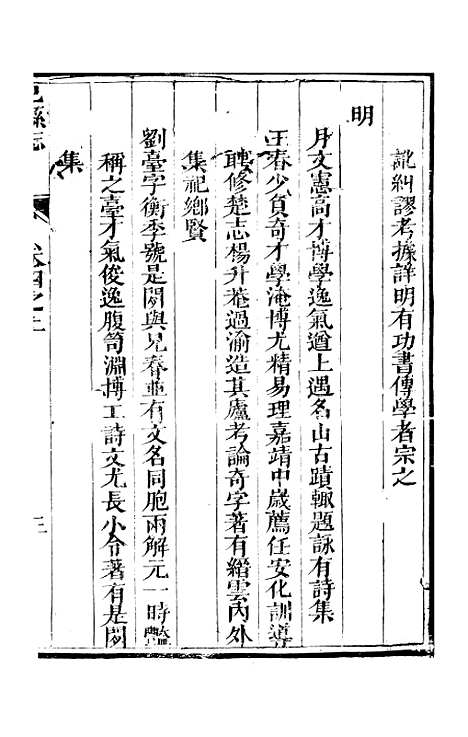 訛糾謬考據詳明有功書傳學者宗之
明
月文憲高才博學逸氣遒上遇名山古蹟輒題詠有詩集
王春少負奇才學淹博尤精易理嘉靖中歲薦任安化訓導
聘修楚志楊升菴過渝造其廬考論奇字著有縉雲內外
集祀鄉賢
劉臺字衡季號是閣與兄春並有文名同胞兩解元一時豔
稱之臺才氣俊逸腹笥淵博工詩文尤長小令著有是閣
集
縣志
卷四之
三